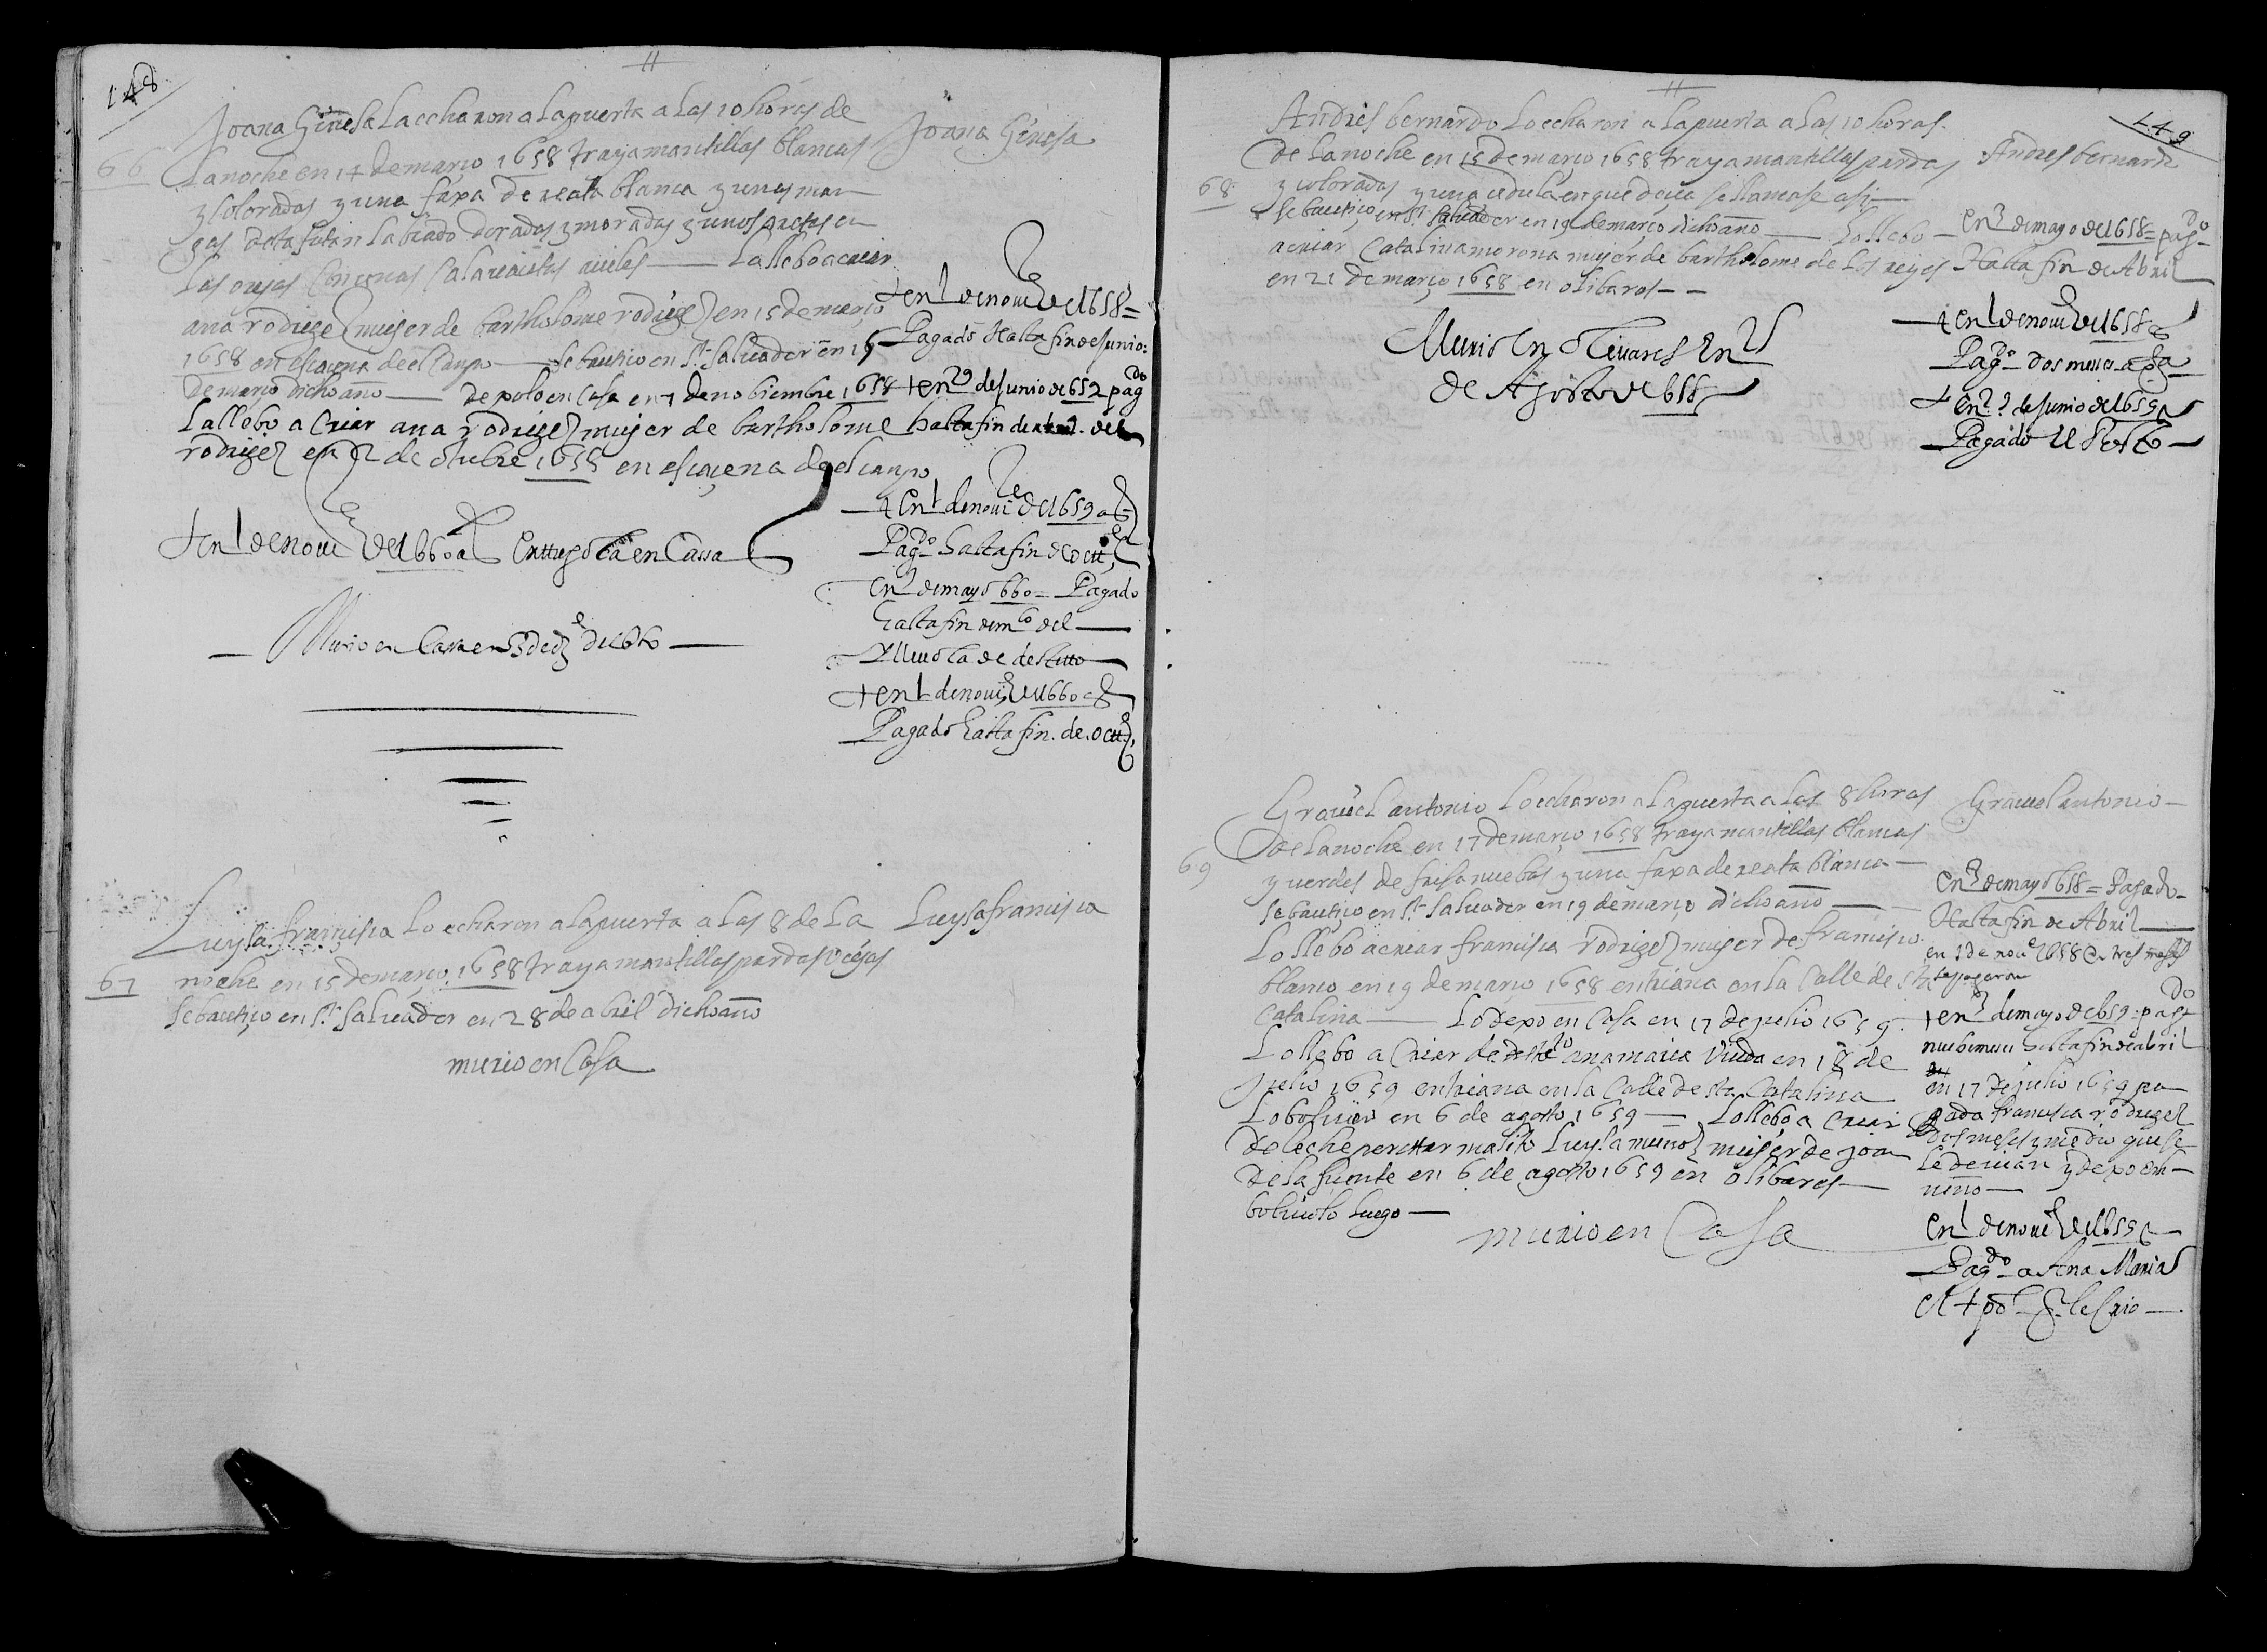 148
Joana Ginesa La echaron a la puerta a las 10 horas de
la noche en 14 de março 1658 traya mantillas blancas
y coloradas y una faxa de reata blanca y unas man
gas de tafetan labrado doradas y moradas y unos
las orejas con unas calabacitas açules — La llebo a criar
ana rodrigez muger de bartholome rodrigez en 15 de março
1658 en escaçena de el canpo — se bautiço en S.r Saluador en 19
de março dicho año — de xolo en casa en 7 de nobiembre 1658
La llebo a criar ana rodrigez muger de bartholome
rodrigez en de otubre 1658 en escaçena de el canpo
66
Joana Ginesa
+ en 1 de nou.e de 1658 =
Pagado Hasta fin de junio:
+ en 9 de junio de 659 pag.do
hasta fin de abril. del
+ en 1 de nou.e de 1659 a
Pag.do hasta fin de oct.e
en de mayo 660 = Pagado
hasta fin de m.ço del —
de destete —
+ en 1 de nou.e de 1660 a
Pagado hasta fin. de. oct.e
+ en 1 de noue de 1660 a en Cassa
— Murio en Cassa en 5 de d.e de 1660 —
Luysa françisca Lo echaron a la puerta a las 8 de La
noche en 15 de março 1658 traya mantillas pardas viejas
se bautiço en S.r Saluador en 28 de abril dicho año
murio en Casa
67
Luysa francisca
149
Andres bernardo Lo echaron a la puerta a las 10 horas
de la noche en 15 de março 1658 traya mantillas pardas
y coloradas y una cedula en que deçia se llamase asi —
se bautiço en S.r Saluador en 19 de março dicho año — Lo llebo —
a criar Catalina morona muger de bartholome de los reyes
en 21 de março 1658 en olibares — —
68
Andres bernardo
en 3 de mayo de 1658 = pag.do
Hasta fin de Abril
+ en 1 de noue de 1658 a
Pag.do dos meses
+ en 9 de junio de 1659 a
Pagado el Resto —
Murio En Oliuares En 2
de Agosto de 1658
Grauiel antonio Lo echaron a la puerta a las 8 horas
de la noche en 17 de março 1658 traya mantillas blancas
y uerdes de frisa nuebas y una faxa de reata blanca —
se bautiço en S.r Saluador en 19 de março dicho año —
Lo llebo a criar françisca rodrigez muger de françisco
blanco en 19 de março 1658 en triana en la Calle de sta
Catalina — Lo dexo en Casa en 17 de julio 1659
Lo llebo a Criar de destete ana maria Viuda en 18 de
julio 1659 en triana en la Calle de sta Catalina
Lo boluio en 6 de agosto 1659 — Lo llebo a Criar
de leche Luysa munoz muger de joan
de la fuente en 6 de agosto 1659 en olibares —
boluiolo luego —
murio en Casa
69
Grauiel antonio —
en 3 de mayo 658 = Pagado —
Hasta fin de Abril —
en 1 de nou.e 1658 tres meses
se pagaron
+ en 3 de mayo de 659 = pag.do
nuebe meses hasta fin de abril
en 17 de julio 1659 pa
gada francisca rodrigez
dos meses y medio que se
le deuian y dexo el —
niño —
en 1 de noue de 1659 a —
Pag.do a Ana Maria
el tpo q. le Crio —